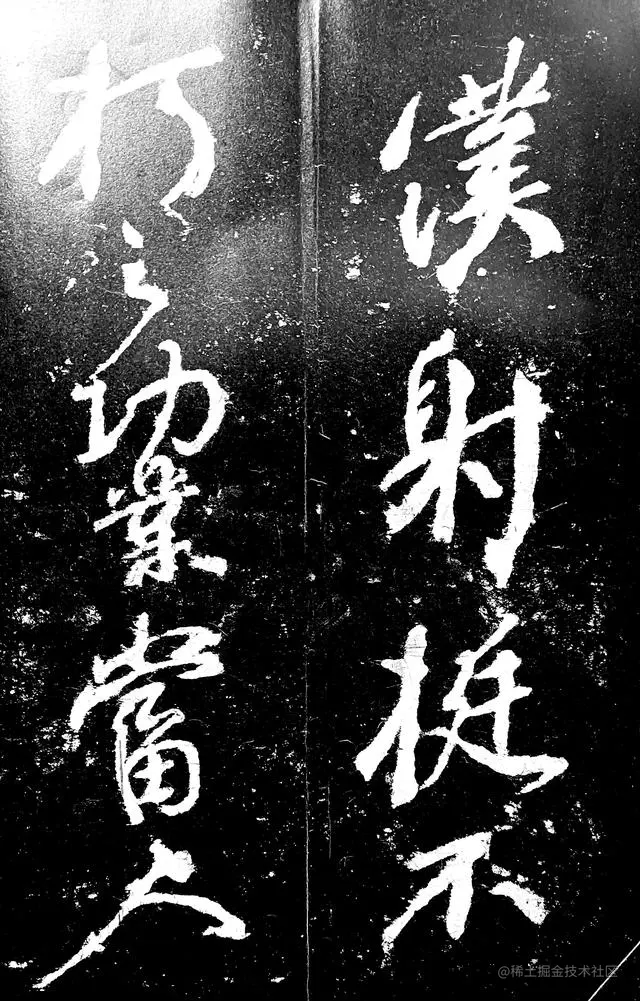 僕射挺不
朽之功業當人
@稀土掘金技术社区